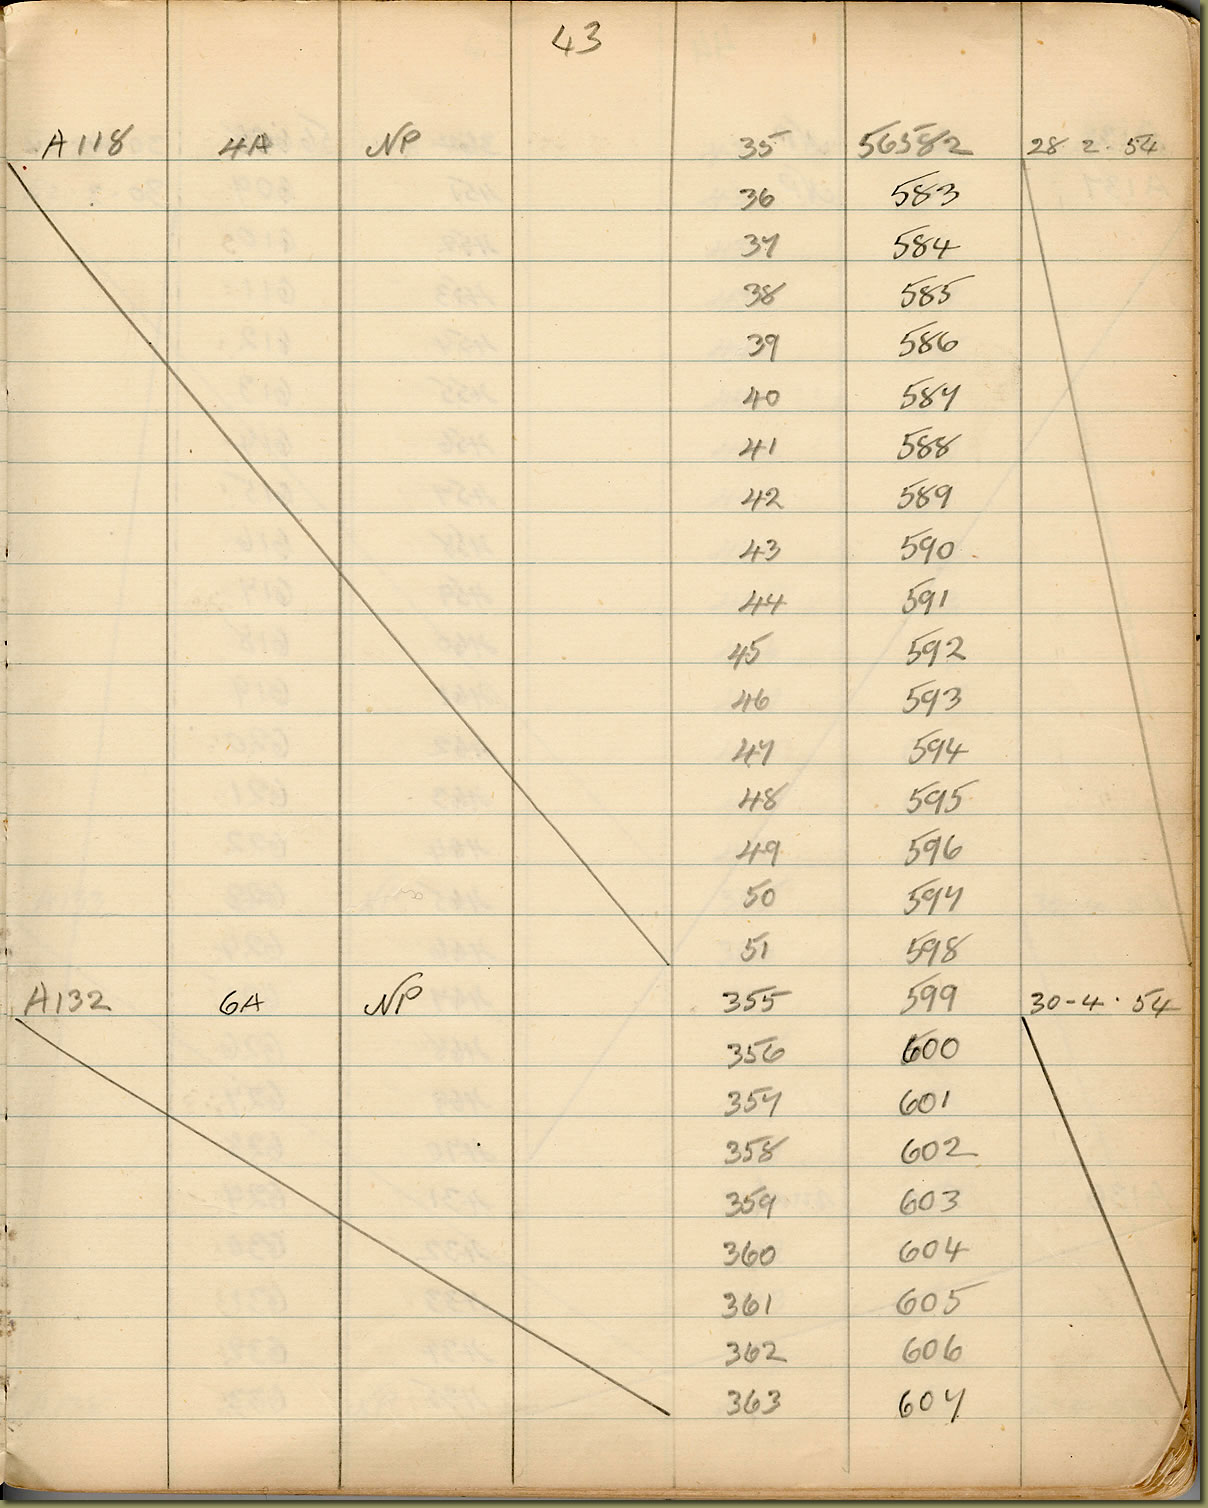 43
A118 4A NP 35 56582 28 2. 54
36 583
37 584
38 585
39 586
40 587
41 588
42 589
43 590
44 591
45 592
46 593
47 594
48 595
49 596
50 597
51 598
A132 6A NP 355 599 30-4·54
356 600
357 601
358 602
359 603
360 604
361 605
362 606
363 607